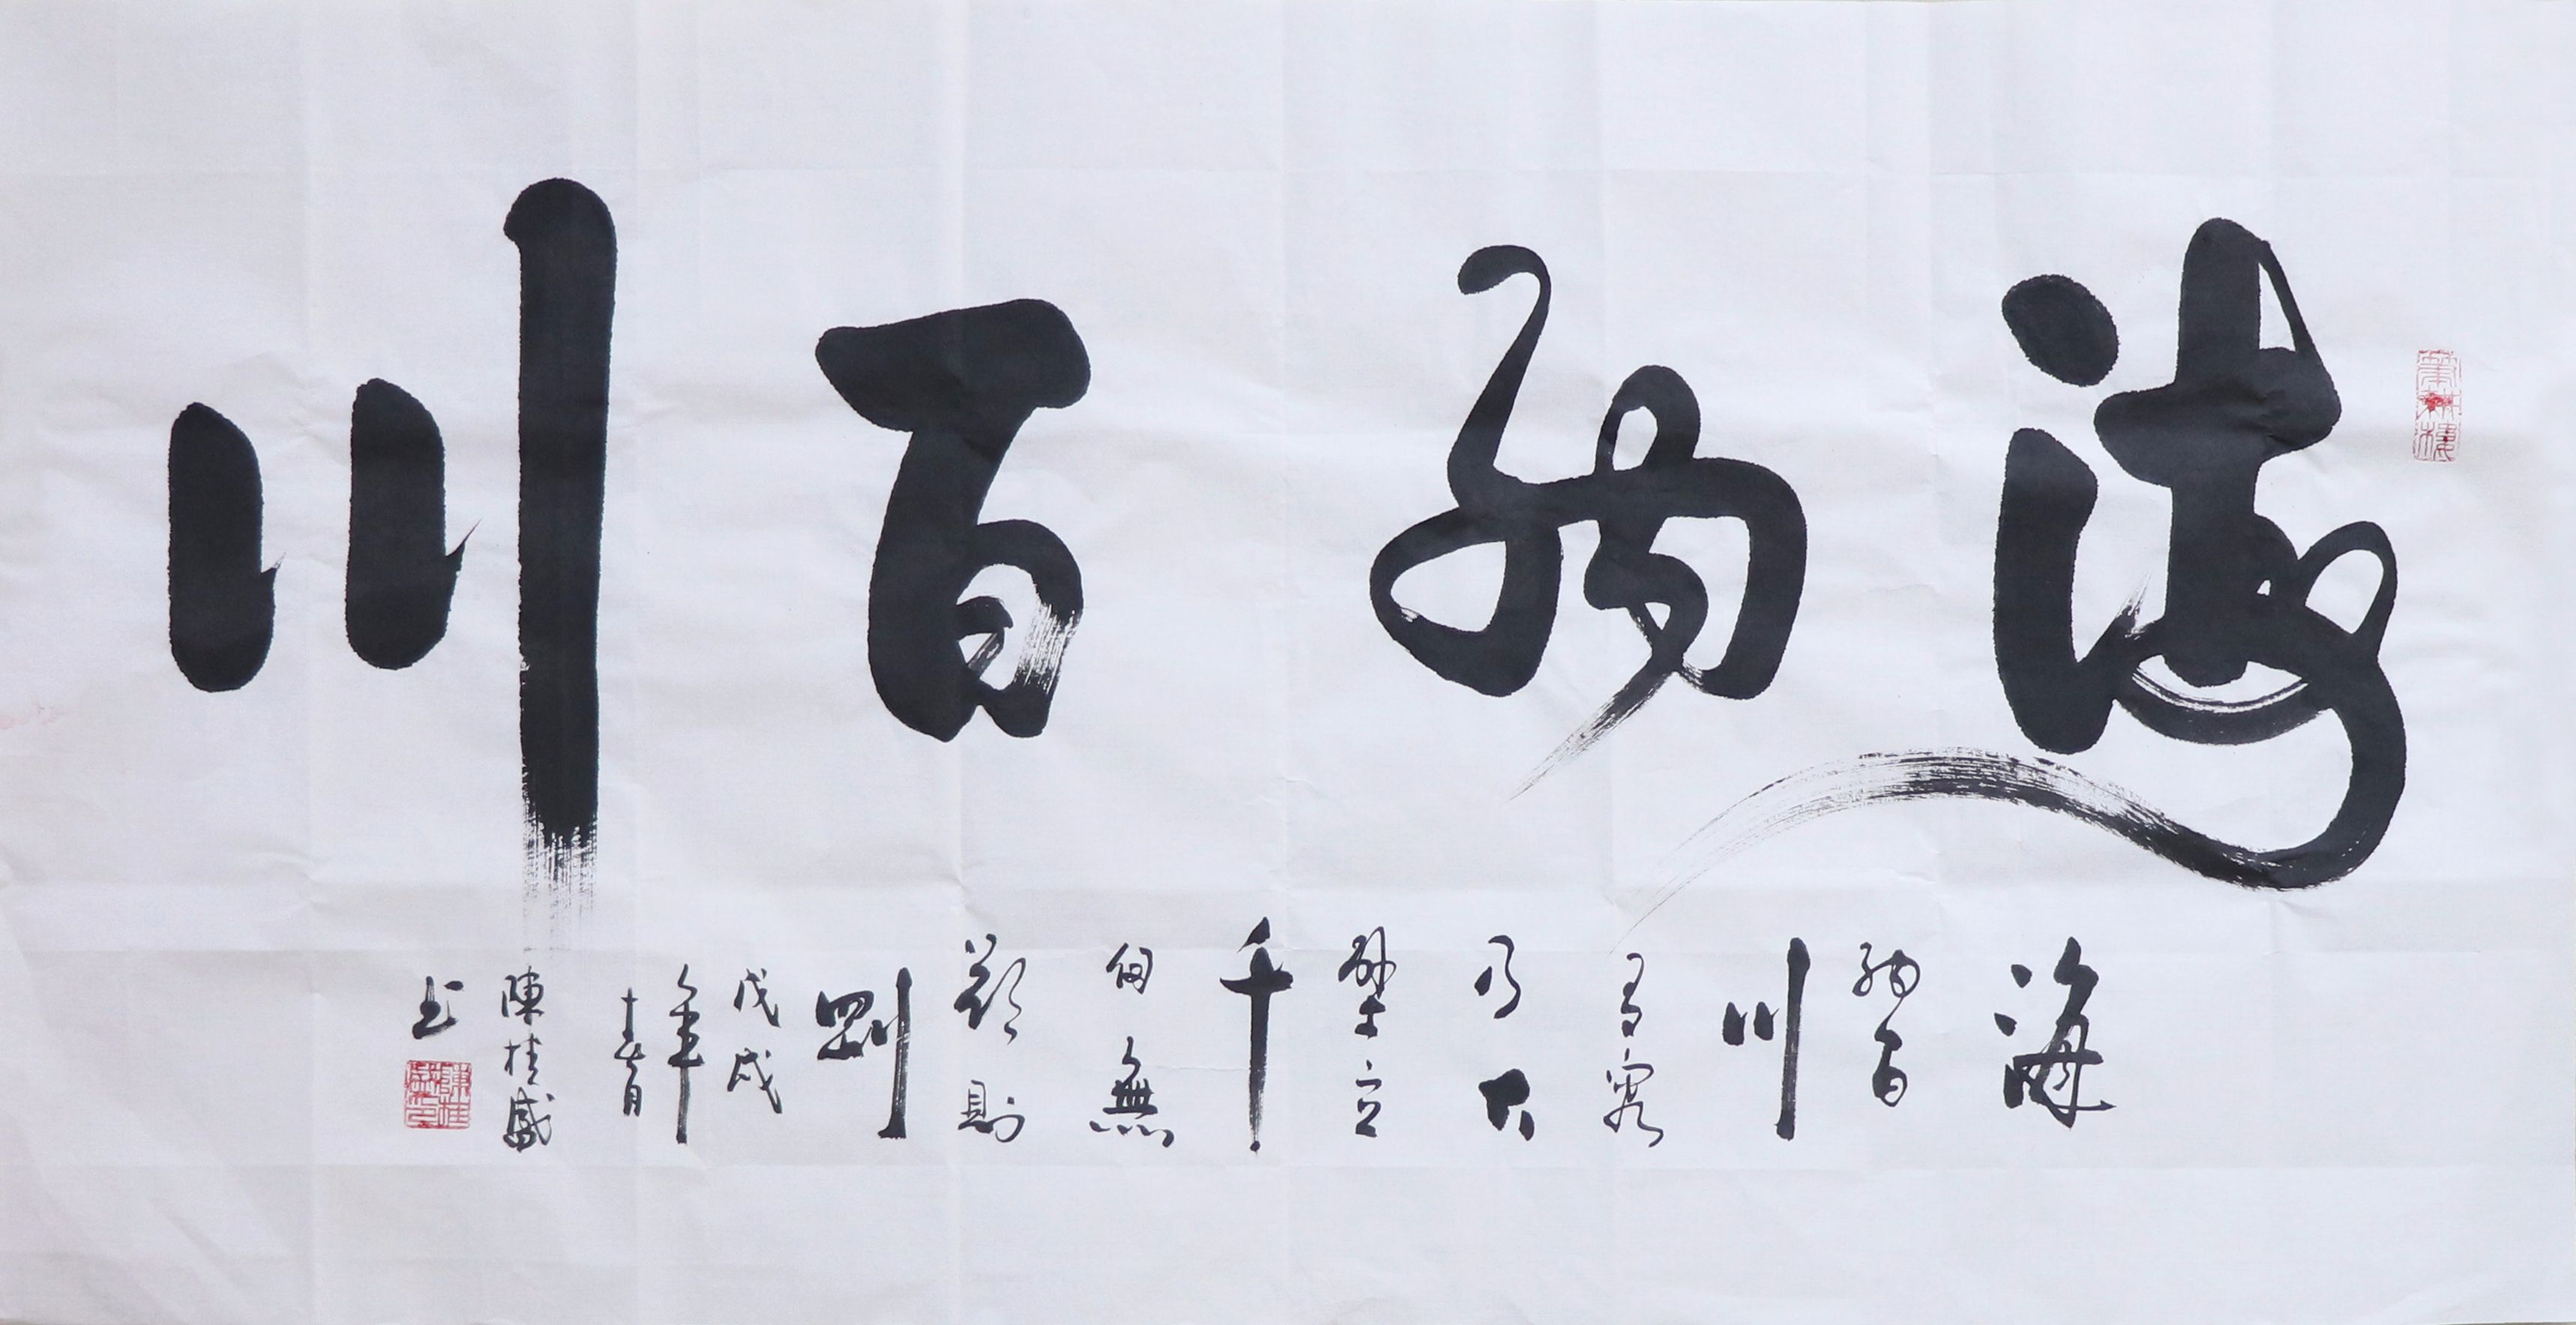 海納百川
海
納百
川
有容
乃大
壁立
千
仞無
欲則
剛
戊戌
年
陳桂盛
書